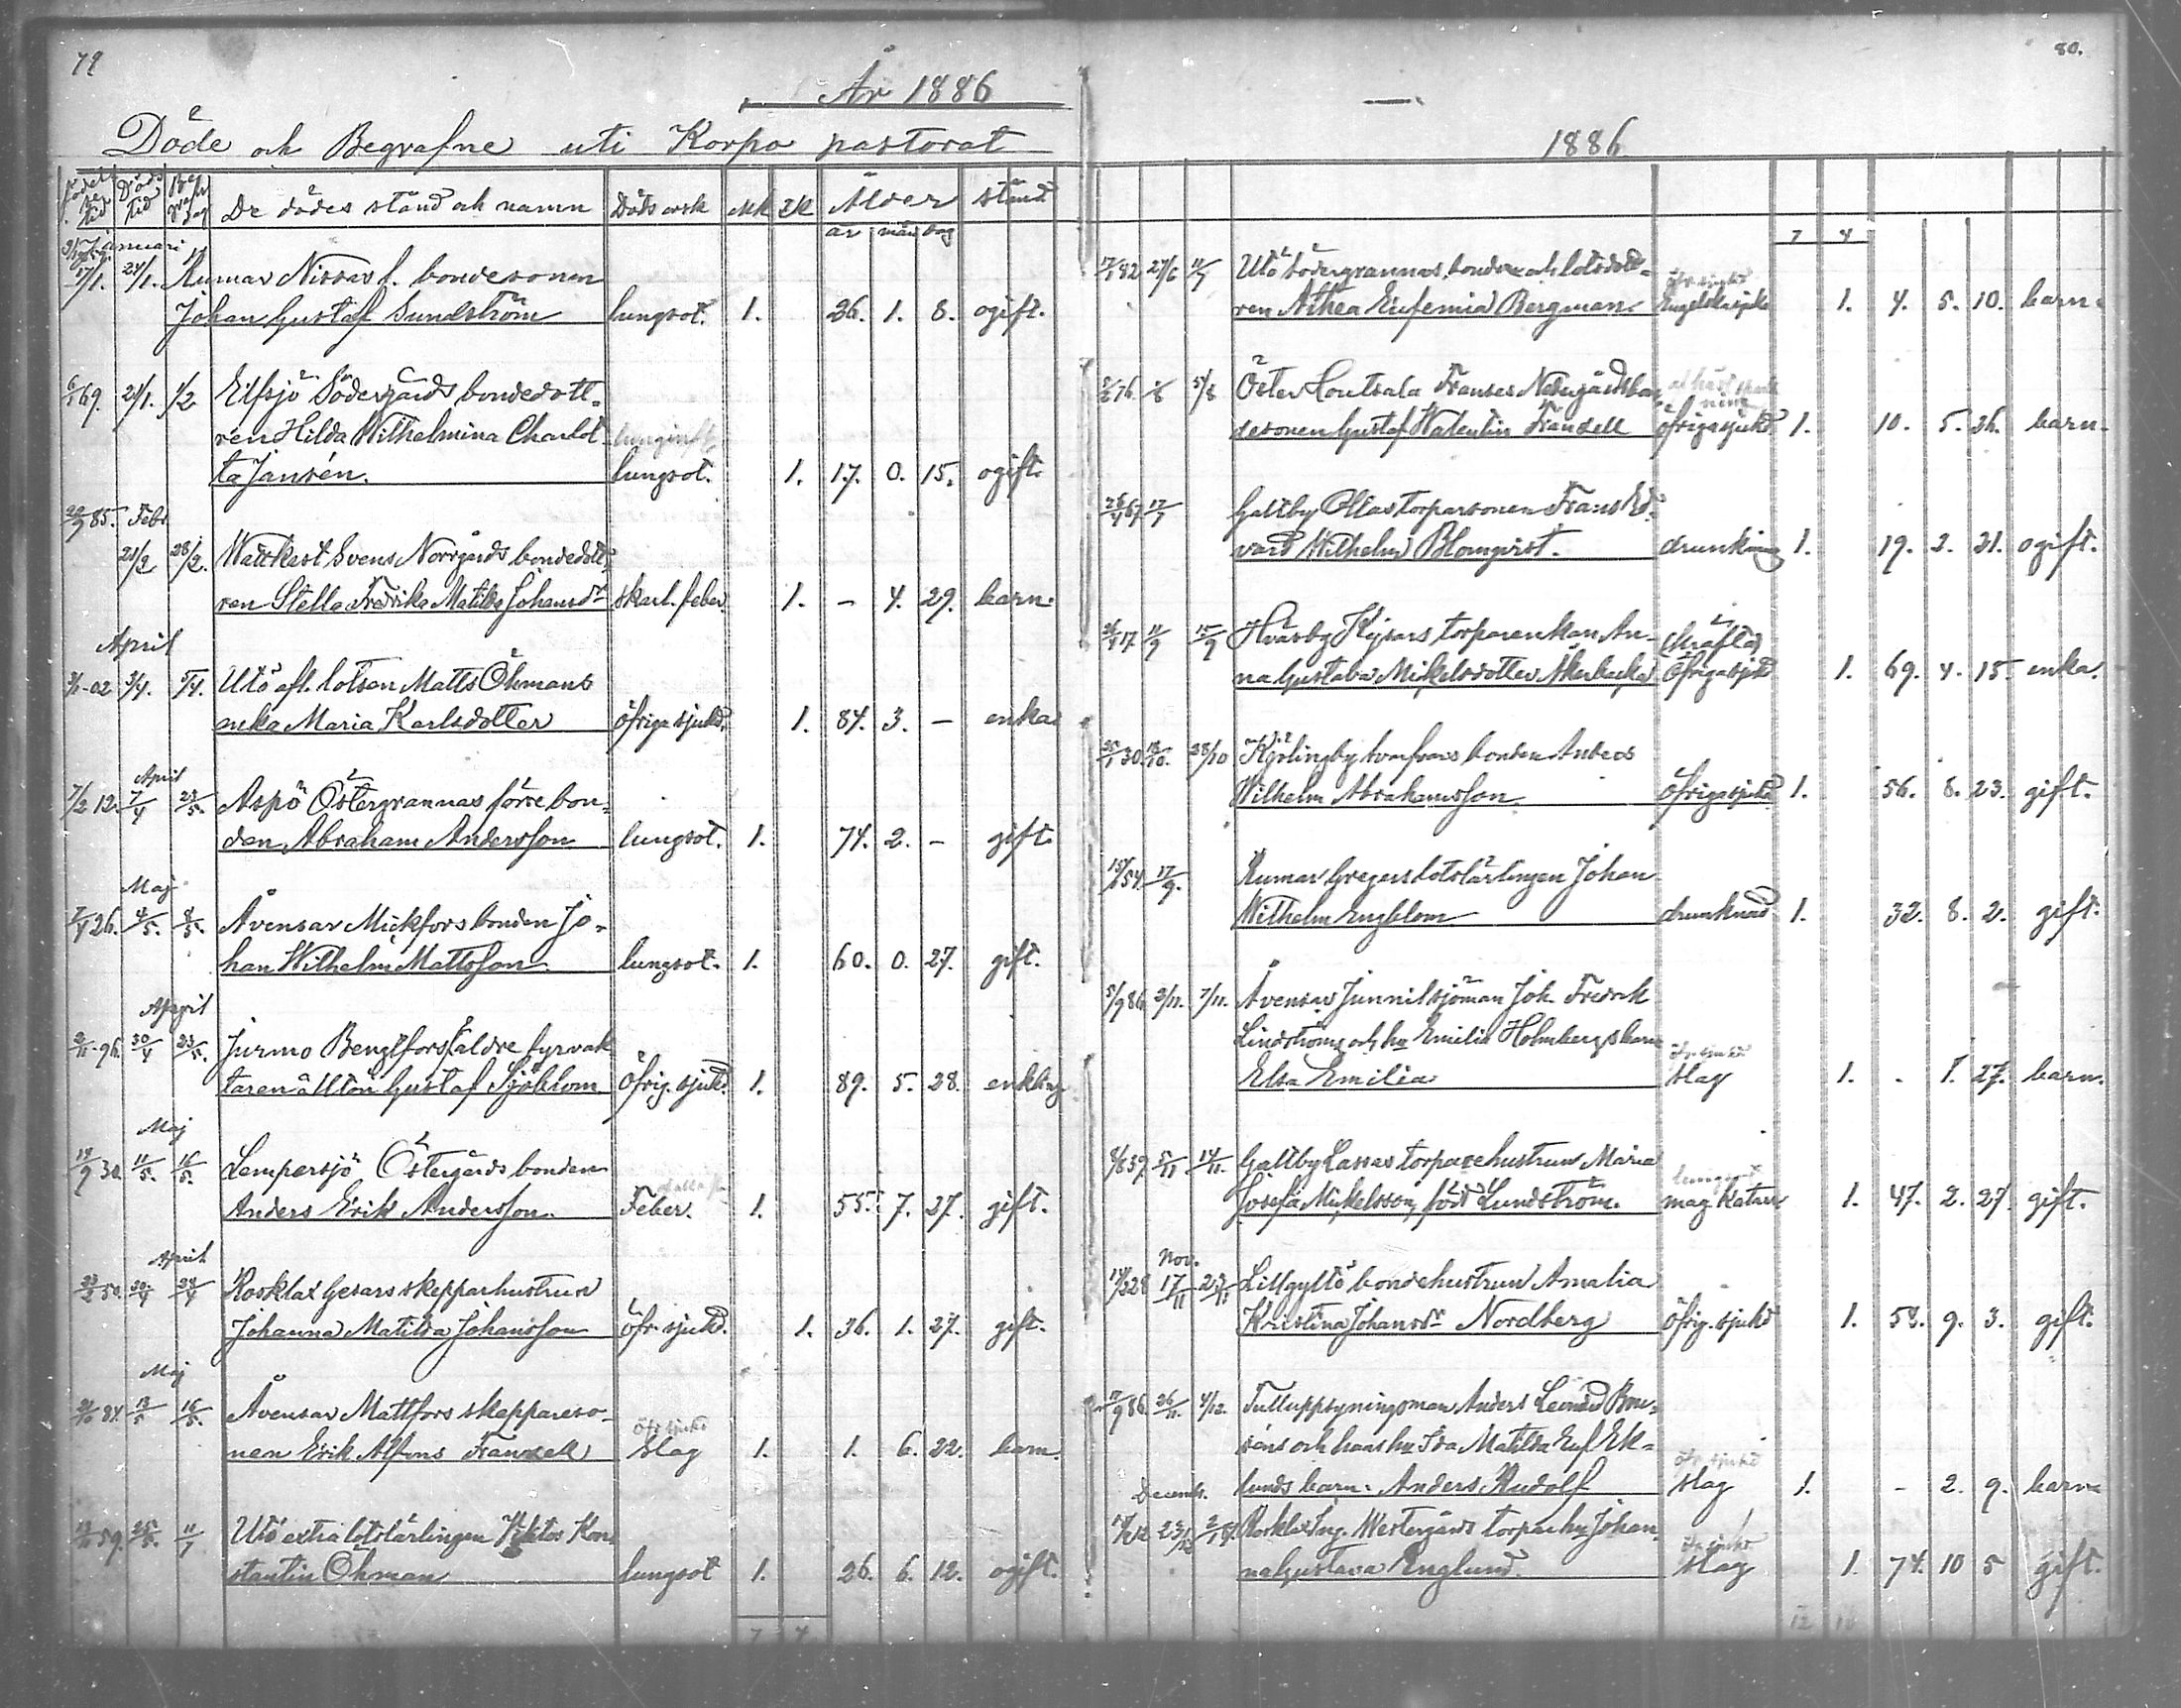 79
År 1886
Döde och Begrafne uti Korpo pastorat
Födel se tid Döds tid Be grafn dag De dödes stånd och namn Döds orsk MK QK Ålder stånd
år mån dag
Januari
17/1. 24/1. Rumar Nissas f. bondesonen
Johan Gustaf Sundström lungsot. 1. 26. 1. 8. ogift.
6/1 69. 21/1. 1/2 Elfsjö Södergårds bondedott-
ren Hilda Wilhelmina Charlot-
ta Jansén. lungsot. 1. 17. 0. 15. ogift.
85. Febr.
21/2 28/2. Wattkast Svens Norrgårds bondedott-
ren Stella Fredrika Matilda Johansdr skarl. feber. 1. – 4. 29. barn.
April
3/1-02 3/4. Utö afl. lotsen Matts Öhmans
enka Maria Karlsdotter öfriga sjukd. 1. 84. 3. – enka
April
7/2 12. 7/4 23/5. Aspö Östergrannas förre bon-
den Abraham Andersson lungsot. 1. 74. 2. – gift.
Maj
7/4 26. 4/5. 8/5. Åvensar Mickfors bonden Jo-
han Wilhelm Mattsson lungsot. 1. 60. 0. 27. gift.
April
2/11-96. 30/4 23/5. Jurmo Bengtfors äldre fyrvak
taren å Utön Gustaf Sjöblom. Öfrig. sjukd. 1. 89. 5. 28. enkling
Maj
14/9 30. 11/5. 16/5. Lempersjö Östergårds bonden
Anders Erik Andersson. Feber. 1. 55. 7. 27. gift.
April
23/2 50. 20/4 24/4 Rosklax Gesars skepparhustrun
Johanna Matilda Johansson öfr. sjukd. 1. 36. 1. 27. gift.
Maj
21/10 84. 13/5 16/5. Åvensar Mattfors skeppareso-
nen Erik Alfons Franzell slag 1. 1. 6. 22. barn.
59. 25/5. Utö extra lotslärlingen Viktor Kon-
stantin Öhman lungsot 1. 26. 6. 12. ogift.
7 4
80.
1886
7 4
17/1 82 27/6 11/7 Utö Södergrannas bonden och lotsdott-
ren Althea Eufemia Bergman Engelska sjuka 1. 4. 5. 10. barn.
öfr. sjukd
Öster Houtsala Franses Nedergårds bon-
desonen Gustaf Walentin Franzell öfriga sjukd. 1. 10. 5. 26. barn.
26/4 67. 17/7 Galtby Ollas torparsonen Frans Ed-
vard Wilhelm Blomqvist. drunkning 1. 19. 2. 21. ogift.
26/4 17. 11/9 15/9 Hvarby torparenkan An- (kräfta)
na Gustava Mickelsdotter Åkerbacka Öfriga sjkd 1. 69. 4. 15. enka.
25/1 30. 18/10. 28/10 bonden Anders
Wilhelm Abrahamsson Öfriga sjukd 1. 56. 8. 23. gift.
15/1 54. 17/9. Rumar Gregers lotslärlingen Johan
Wilhelm Engblom drunknad 1. 32. 8. 2. gift.
5/9 86. 2/11. 7/11. Åvensar Junnil sjöman Joh. Fredrik
Lindströms och hu Emilia Holmbergs barn
Elsa Emilia slag 1. . 1. 27. barn.
8/8 39. 5/11 14/11. Galtby Lassas torparehustrun Maria
Josefa Mickelsson, född Lundström. mag. Katarr 1. 47. 2. 27. gift.
Nov.
14/2 28 17/11 Lillgyltö bondehustrun Amalia
Kristina Johansdr Nordberg Öfrig. sjukd 1. 58. 9. 3. gift.
17/9 86. 26/11. 4/12. Tulluppsyningsman Anders Leonard
och hans hu Ida Matilda Euf. Ek-
lunds barn: Anders Rudolf slag 1. – 2. 9. barn
Decemb.
23/12 Rosklax Ing. Westergårds torparhu Johan-
na Gustava Englund. slag 1. 74. 10 5 gift.
öfr. sjukd
12 16